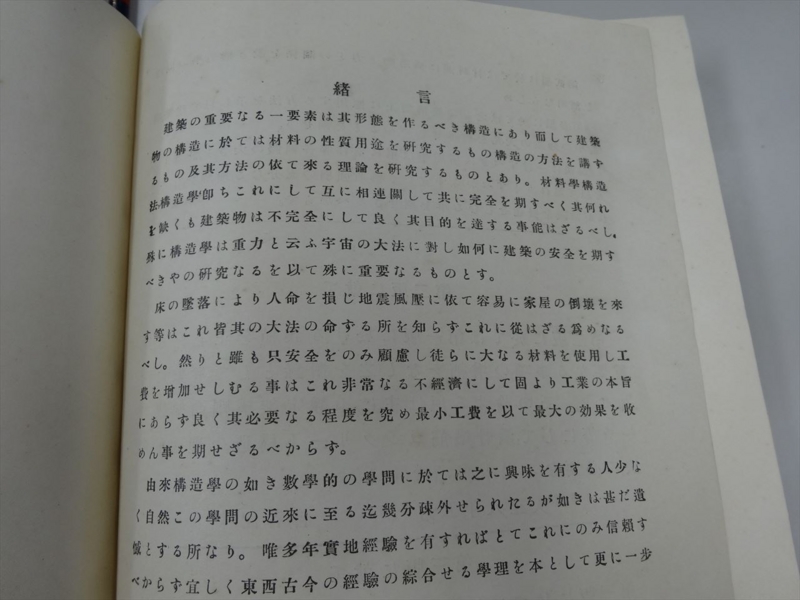 緒言
建築の重要なる一要素は其形態を作るべき構造にあり而して建築
物の構造に於ては材料の性質用途を硏究するもの構造の方法を講ず
るもの及其方法の依て來る理論を硏究するものとあり。材料學構造
法構造學卽ちこれにして互に相連關して共に完全を期すべく其何れ
を缺くも建築物は不完全にして良く其目的を達する事能はざるべし。
殊に構造學は重力と云ふ宇宙の大法に對し如何に建築の安全を期す
べきやの硏究なるを以て殊に重要なるものとす。
床の墜落により人命を損じ地震風壓に依て容易に家屋の倒壞を來
す等はこれ皆其の大法の命する所を知らずこれに從はざる爲めなる
べし。然りと雖も只安全をのみ顧慮し徒らに大なる材料を使用し工
費を增加せしむる事はこれ非常なる不經濟にして固より工業の本旨
にあらず良く其必要なる程度を究め最小工費を以て最大の効果を收
めん事を期せざるべからず。
由來構造學の如き數學的の學問に於ては之に興味を有する人少な
く自然この學問の近來に至る迄幾分疎外せられたるが如きは甚だ遺
憾とする所なり。唯多年實地經驗を有すればとてこれにのみ信賴す
べからず宜しく東西古今の經驗の綜合せる學理を本として更に一步